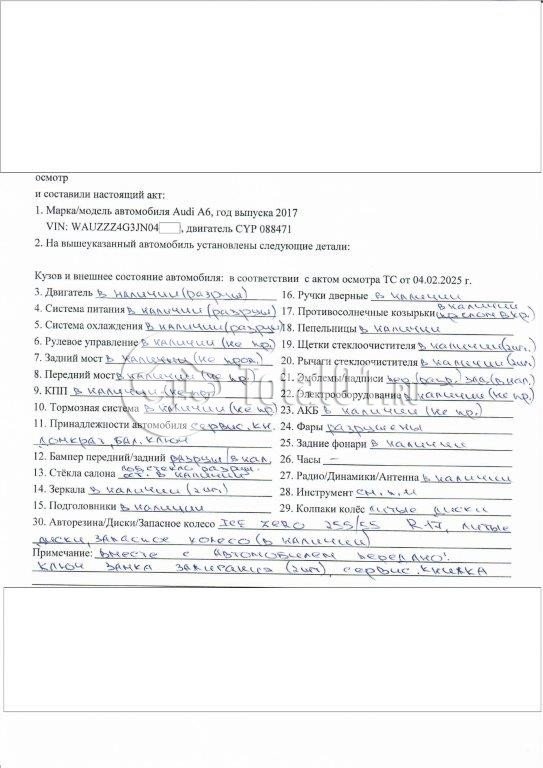 осмотр
и составили настоящий акт:
1. Марка/модель автомобиля Audi A6, год выпуска 2017
VIN: WAUZZZ4G3JN04 , двигатель CYP 088471
2. На вышеуказанный автомобиль установлены следующие детали:
Кузов и внешнее состояние автомобиля: в соответствии с актом осмотра ТС от 04.02.2025 г.
3. Двигатель в наличии (разруш)
4. Система питания в наличии (разруш)
5. Система охлаждения в наличии (разруш)
6. Рулевое управление в наличии (не пр.)
7. Задний мост в наличии (не пров.)
8. Передний мост в наличии не пр.)
9. КПП в наличии (не пр.
10. Тормозная система в наличии (не пр.)
11. Принадлежности автомобиля сервис. кн.
домкрат, бал. ключ
12. Бампер передний/задний разруш/в нал.
13. Стёкла салона лоб стекло разруш.
ост. в наличии
14. Зеркала в наличии (2шт)
15. Подголовники в наличии
16. Ручки дверные в наличии
17. Противосолнечные козырьки в наличии
18. Пепельницы в наличии
19. Щетки стеклоочистителя в наличии (2шт.)
20. Рычаги стеклоочистителя в наличии (2шт)
21. Эмблемы/надписи пер. (разр.) зад. (в нал.)
22. Электрооборудование в наличии (не пр.)
23. АКБ в наличии (не пр.)
24. Фары разрушены
25. Задние фонари в наличии
26. Часы –
27. Радио/Динамики/Антенна в наличии
28. Инструмент см. п. 11
29. Колпаки колёс литые диски
30. Авторезина/Диски/Запасное колесо ICE ZERO 255/55 R-17, литые
диски, запасное колесо (в наличии)
Примечание: вместе с автомобилем передано:
ключ замка зажигания (2шт), сервис. книжка
CRS Total01.ru